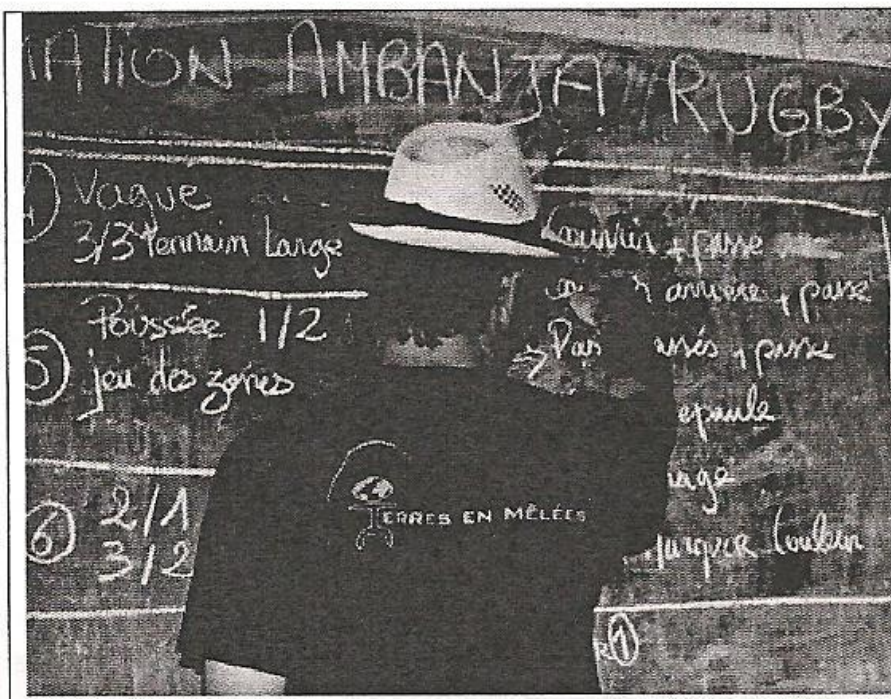 ATION AMBANJA RUGBY
4) Vague
3/3 Terrain large
5 Poussée 1/2
jeu des zones
6 2/1
3/2
Courir + passe
arrière + passe
Pas + passe
epaule
marquer Couleur
1
TERRES EN MÊLÉES